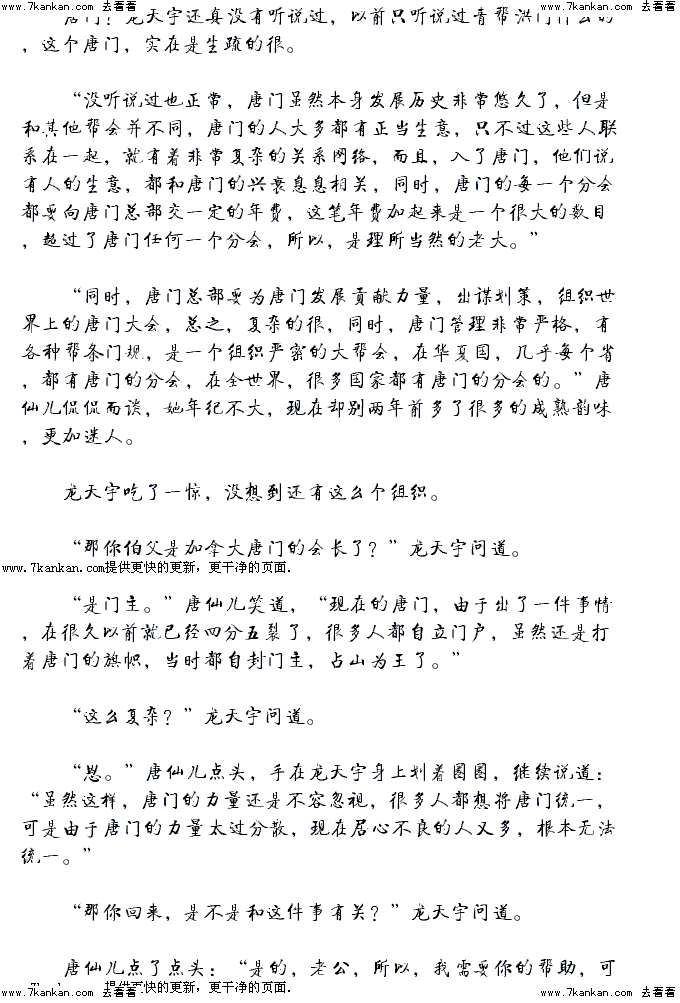 www.7kankan.com 去看看 www.7kankan.com 去看看
唐门？龙天宇还真没有听说过，以前只听说过青帮洪门什么的
，这个唐门，实在是生疏的很。
“没听说过也正常，唐门虽然本身发展历史非常悠久了，但是
和其他帮会并不同，唐门的人大多都有正当生意，只不过这些人联
系在一起，就有着非常复杂的关系网络，而且，入了唐门，他们说
有人的生意，都和唐门的兴衰息息相关，同时，唐门的每一个分会
都要向唐门总部交一定的年费，这笔年费加起来是一个很大的数目
，超过了唐门任何一个分会，所以，是理所当然的老大。”
“同时，唐门总部要为唐门发展贡献力量，出谋划策，组织世
界上的唐门大会，总之，复杂的很，同时，唐门管理非常严格，有
各种帮条门规，是一个组织严密的大帮会，在华夏国，几乎每个省
，都有唐门的分会，在全世界，很多国家都有唐门的分会的。”唐
仙儿侃侃而谈，她年纪不大，现在却别两年前多了很多的成熟韵味
，更加迷人。
龙天宇吃了一惊，没想到还有这么个组织。
“那你伯父是加拿大唐门的会长了？”龙天宇问道。
www.7kankan.com提供更快的更新，更干净的页面．
“是门主。”唐仙儿笑道，“现在的唐门，由于出了一件事情
，在很久以前就已经四分五裂了，很多人都自立门户，虽然还是打
着唐门的旗帜，当时都自封门主，占山为王了。”
“这么复杂？”龙天宇问道。
“恩。”唐仙儿点头，手在龙天宇身上划着圈圈，继续说道：
“虽然这样，唐门的力量还是不容忽视，很多人都想将唐门统一，
可是由于唐门的力量太过分散，现在居心不良的人又多，根本无法
统一。”
“那你回来，是不是和这件事有关？”龙天宇问道。
唐仙儿点了点头：“是的，老公，所以，我需要你的帮助，可
提供更快的更新，更干净的页面．
www.7kankan.com 去看看 www.7kankan.com 去看看